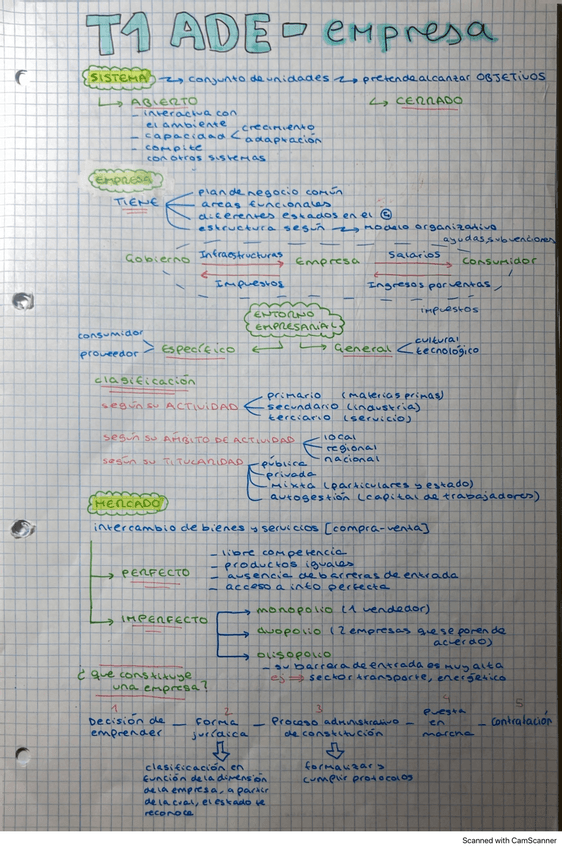 T1 ADE - empresa
SISTEMA → conjunto de unidades → pretende alcanzar OBJETIVOS
ABIERTO CERRADO
- interactua con
el ambiente
- capacidad < crecimiento
adaptación
- compite
con otros sistemas
EMPRESA
TIENE
plan de negocio común
areas funcionales
diferentes estados en el
estructura según → modelo organizativo
ayudas, subvenciones
Gobierno Infraestructuras Empresa Salarios Consumidor
Impuestos Ingresos por ventas
impuestos
ENTORNO
EMPRESARIAL
consumidor
proveedor
Específico General
cultural
tecnológico
clasificación
según su ACTIVIDAD
primario (materias primas)
secundario (industria)
terciario (servicio)
según su AMBITO DE ACTIVIDAD
local
regional
nacional
según su TITULARIDAD
pública
privada
mixta (particulares y estado)
autogestión (capital de trabajadores)
MERCADO
intercambio de bienes y servicios [compra-venta]
PERFECTO
- libre competencia
- productos iguales
- ausencia de barreras de entrada
- acceso a info perfecta
IMPERFECTO
monopolio (1 vendedor)
duopolio (2 empresas que se ponen de
acuerdo)
oligopolio
- su barrera de entrada es muy alta
ej → sector transporte, energético
¿que constituye
una empresa?
1 2 3 4 5
Decisión de
emprender
- Forma
jurídica
- Proceso administrativo
de constitución
- Puesta
en
marcha
- Contratación
clasificación en
función de la dimensión
de la empresa, a partir
de la cual, el estado te
reconoce
formalizar y
cumplir protocolos
Scanned with CamScanner